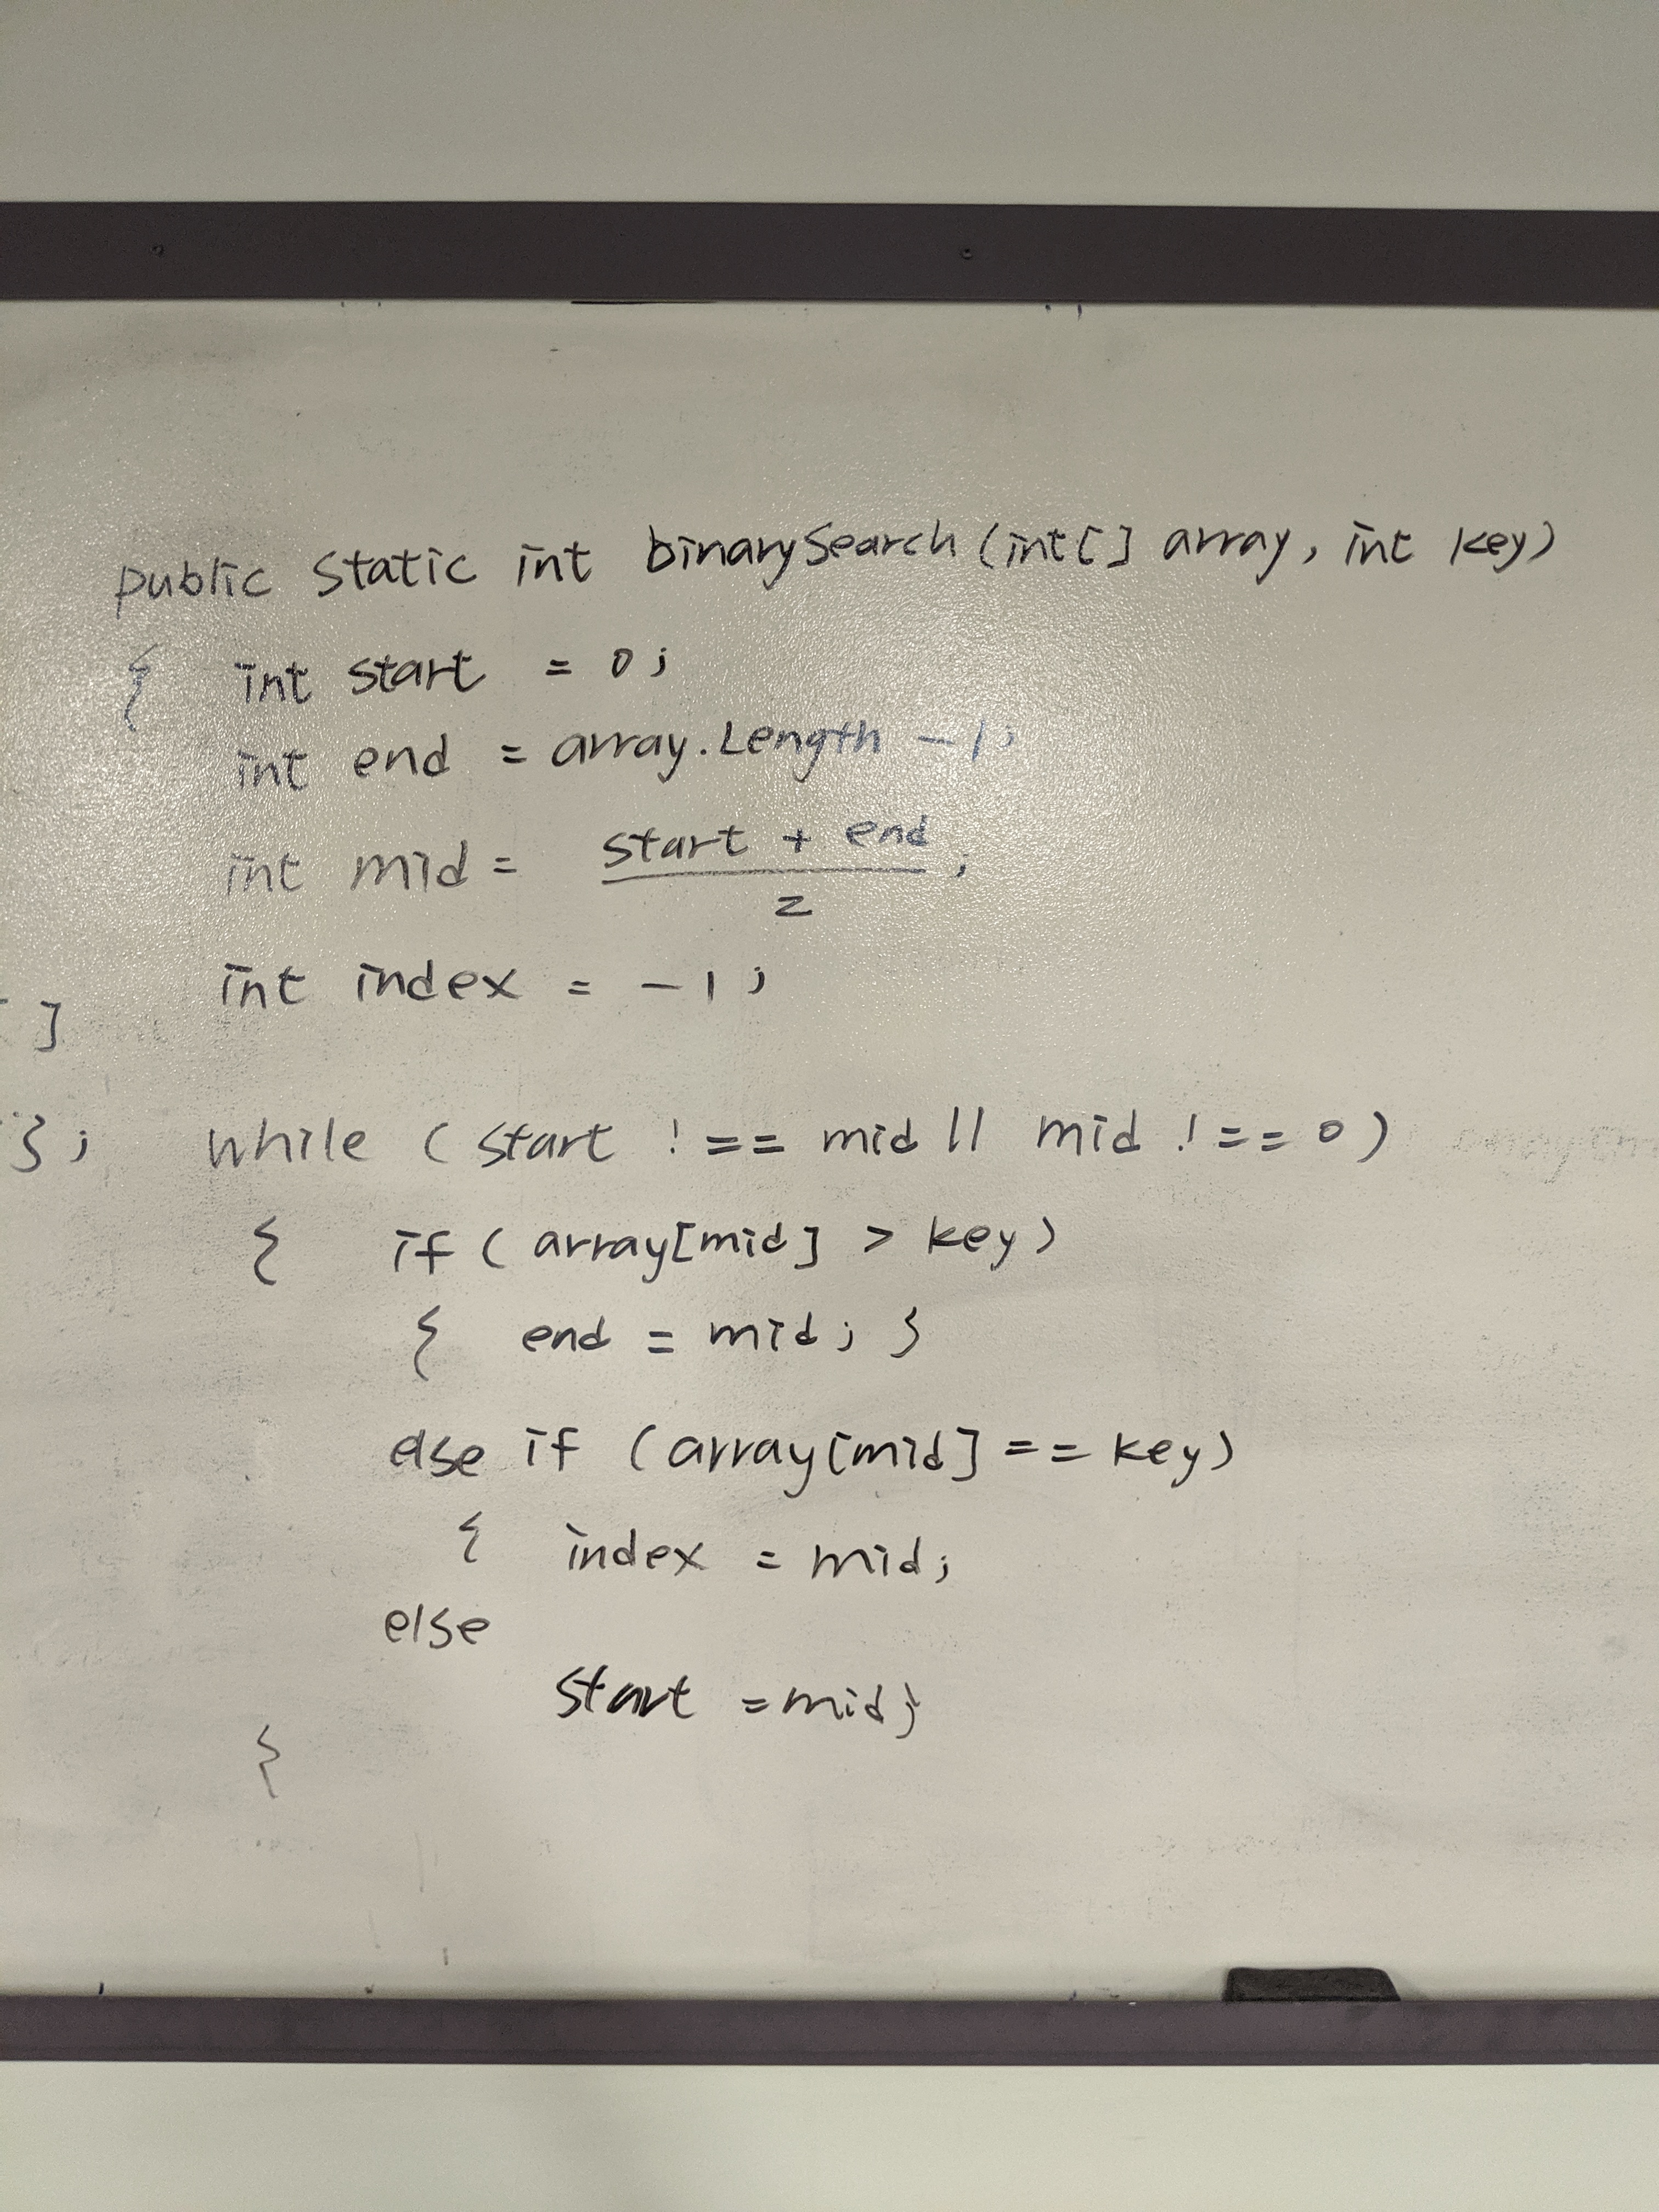 public static int binarySearch (int[] array, int key)
{ int start = 0;
int end = array.Length -1;
int mid = start + end
2 ;
int index = -1;
]
}; while (start !== mid || mid !== 0)
{ if (array[mid] > key)
{ end = mid; }
else if (array[mid] == key)
{ index = mid;
else
start = mid;
}